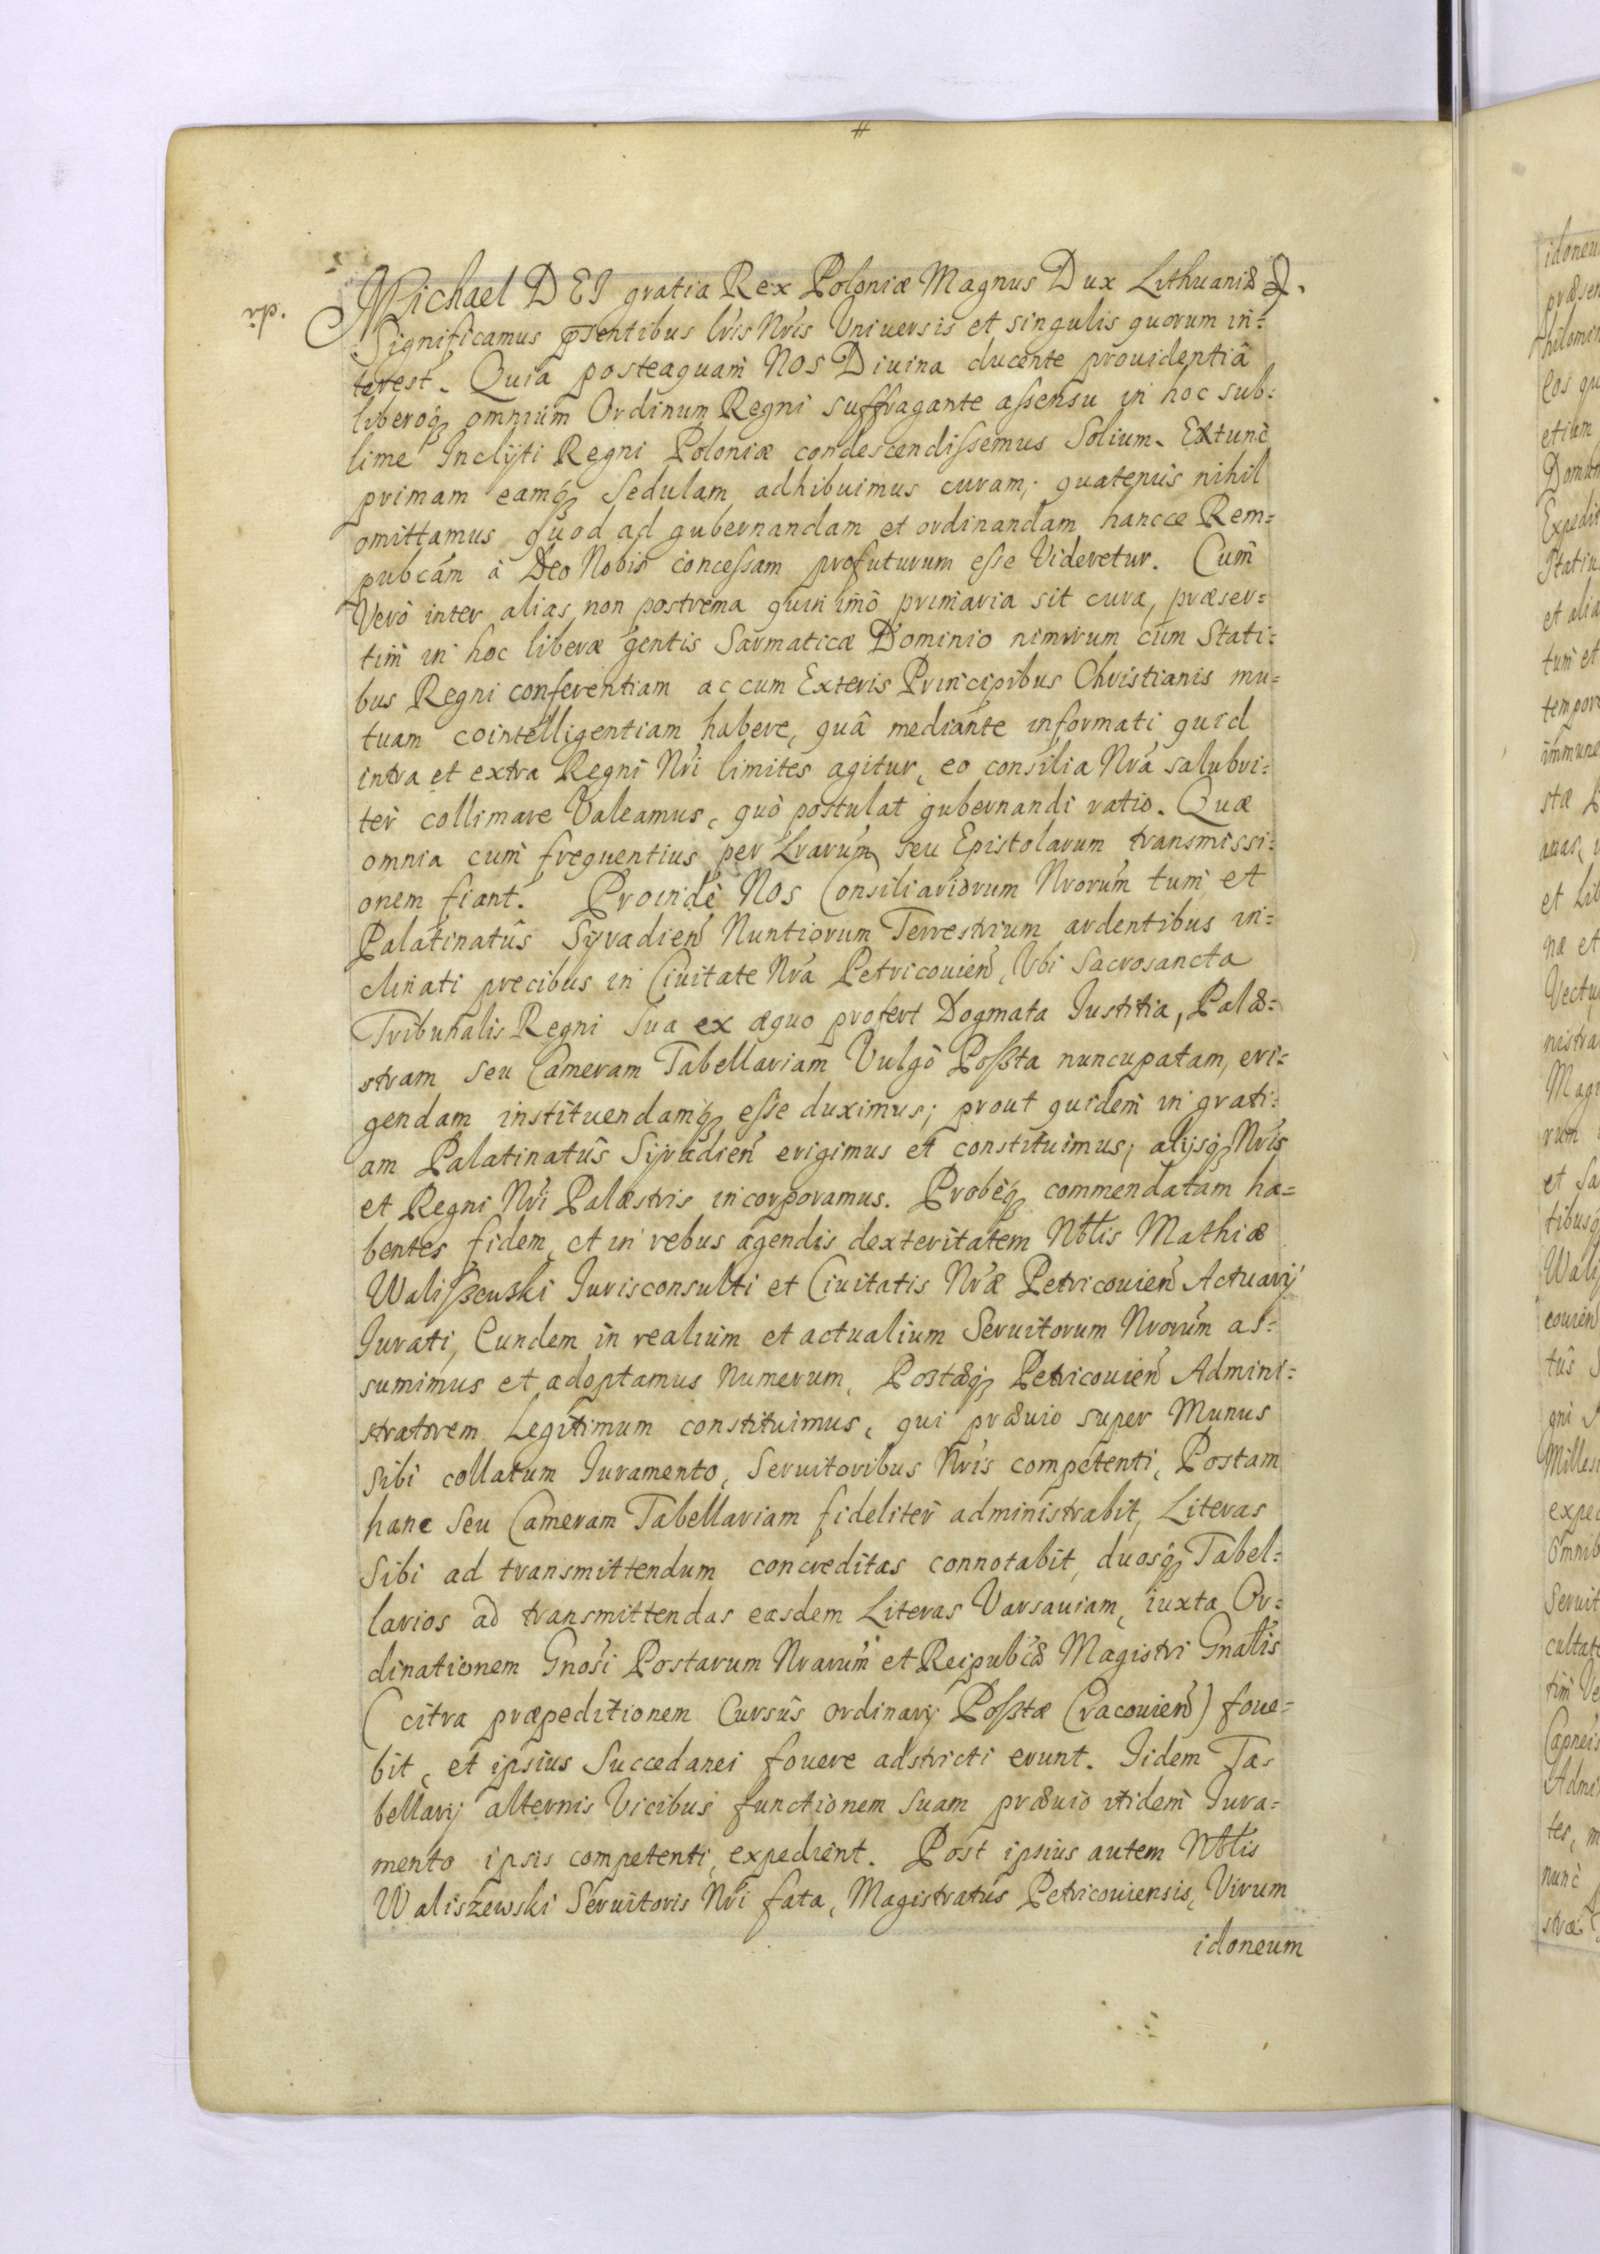 Michael DEI gratia Rex Poloniæ Magnus Dux Lithuaniæ &.
Significamus pñtibus lris Nris Universis et singulis quorum in=
terest. Quia posteaquam NOS Diuina ducente prouidentiâ
liberoq; omnium Ordinum Regni suffragante aßensu in hoc sub=
lime Inclÿti Regni Poloniæ condescendißemus Solium. Extunc
primam eamq; Sedulam adhibuimus curam; quatenus nihil
omittamus quod ad gubernandam et ordinandam hancce Rem=
pubcam à Deo Nobis conceßam profuturum eße Videretur. Cum
Verò inter alias non postrema quin imò primaria sit cura, præser=
tim in hoc liberæ gentis Sarmaticæ Dominio nimirum cum Stati=
bus Regni conferentiam ac cum Exteris Principibus Christianis mu=
tuam cointelligentiam habere, quâ mediante informati quid
intra et extra Regni Nri limites agitur, eo consilia Nra salubri=
ter collimare Valeamus, quò postulat gubernandi ratio. Quæ
omnia cum frequentius per Lrarum seu Epistolarum transmissi=
onem fiant. Proinde NOS Consiliariorum Nrorum tum et
Palatinatûs Syradien Nuntiorum Terrestrium ardentibus in=
clinati precibus in Ciuitate Nra Petricouien, Vbi Sacrosancta
Tribunalis Regni Sua ex æquo profert Dogmata Iustitia, Palæ=
stram seu Cameram Tabellariam Vulgò Poßta nuncupatam, eri=
gendam instituendamq; eße duximus; prout quidem in grati=
am Palatinatûs Syradien erigimus et constituimus; alijsq; Nris
et Regni Nri Palæstris incorporamus. Probeq; commendatam ha=
bentes fidem, et in rebus agendis dexteritatem Nblis Mathiæ
Walißewski Iurisconsulti et Ciuitatis Nræ Petricouien Actuarij
Iurati, Eundem in realium et actualium Seruitorum Nrorum as=
sumimus et adoptamus Numerum, Postæq; Petricouien Admini=
stratorem Legitimum constituimus, qui præuio super Munus
Sibi collatum Iuramento, Seruitoribus Nris competenti, Postam
hanc Seu Cameram Tabellariam fideliter administrabit, Literas
Sibi ad transmittendum concreditas connotabit, duosq; Tabel=
larios ad transmittendas easdem Literas Varsauiam, iuxta Or=
dinationem Gnosi Postarum Nrarum et Reipublcæ Magistri Gnalis
(citra præpeditionem Cursûs ordinarij Poßtæ Cracouien) foue=
bit, et ipsius Succedanei fouere adstricti erunt. Iidem Ta=
bellarij alternis Vicibus functionem Suam præuio itidem Iura=
mento ipsis competenti, expedient. Post ipsius autem Nblis
Waliszewski Seruitoris Nri fata, Magistratus Petricouiensis, Virum
idoneum